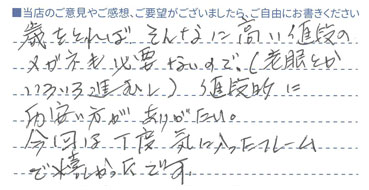 ■当店のご意見やご感想、ご要望がございましたら、ご自由にお書きください
歳をとれば、そんなに高い値段の
メガネも必要ないので、(老眼とか
いろいろ進むし) 値段的に
お安い方がありがたい。
今回は丁度気に入ったフレーム
で嬉しかったです。